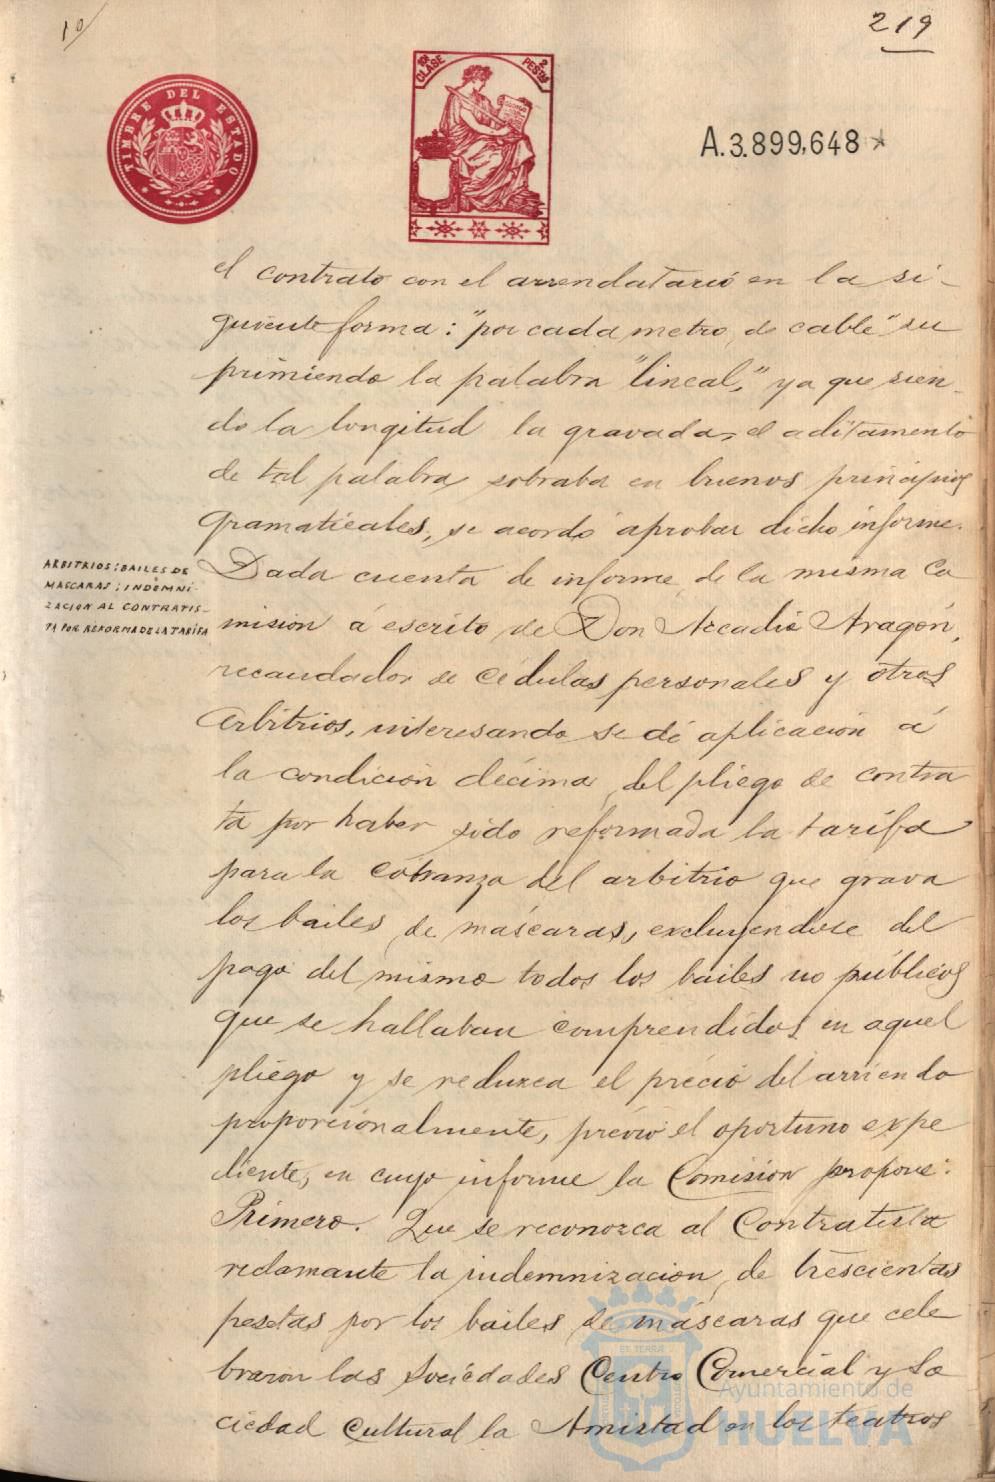 10/
219
TIMBRE DEL ESTADO
10ª CLASE
2 PESTAS
A.3.899,648
el contrato con el arrendatario en la si-
guiente forma: "por cada metro de cable" su
primiendo la palabra "lineal," ya que sien-
do la longitud la gravada, el aditamento
de tal palabra, sobraba en buenos principios
gramaticales, se acordó aprobar dicho informe.
ARBITRIOS: BAILES DE
MASCARAS; INDEMNI-
ZACION AL CONTRATIS-
TA POR REFORMA DE LA TARIFA
Dada cuenta de informe de la misma Co
misión á escrito de Don Arcadio Aragón,
recaudador de cédulas personales y otros
arbitrios, interesando se dé aplicación á
la condición décima del pliego de contra
ta por haber sido reformada la tarifa
para la cobranza del arbitrio que grava
los bailes de máscaras, excluyendose del
pago del mismo todos los bailes no públicos
que se hallaban comprendidos en aquel
pliego y se reduzca el precio del arriendo
proporcionalmente, prévio el oportuno expe
diente, en cuyo informe la Comisión propone:
Primero. Que se reconozca al Contratista
reclamante la indemnización de trescientas
pesetas por los bailes de máscaras que cele
braron las Sociedades Centro Comercial y So
ciedad Cultural la Amistad en los teatros
Ayuntamiento de
HUELVA